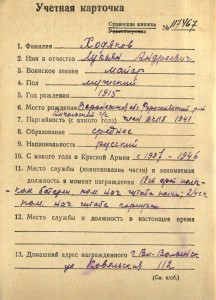 Учетная карточка
Орденская книжка № 117467
Удостоверение
1. Фамилия Ходяков
2. Имя и отчество Лукьян Андреевич
3. Воинское звание майор
4. Пол мужской
5. Год рождения 1915
6. Место рождения Воронежская обл
7. Партийность (с какого года) член ВКПб 1941
8. Образование среднее
9. Национальность русский
10. С какого года в Красной Армии с 1937 - 1946
11. Место службы (наименование части) и занимаемая
должность в момент награждения арт полк
ком батареи, пом нач штаба полка
пом нач штаба корпуса
12. Место службы и должность в настоящее время
13. Домашний адрес награжденного г. Вл-Волынск
ул Ковельская 112
(См. н/об.)